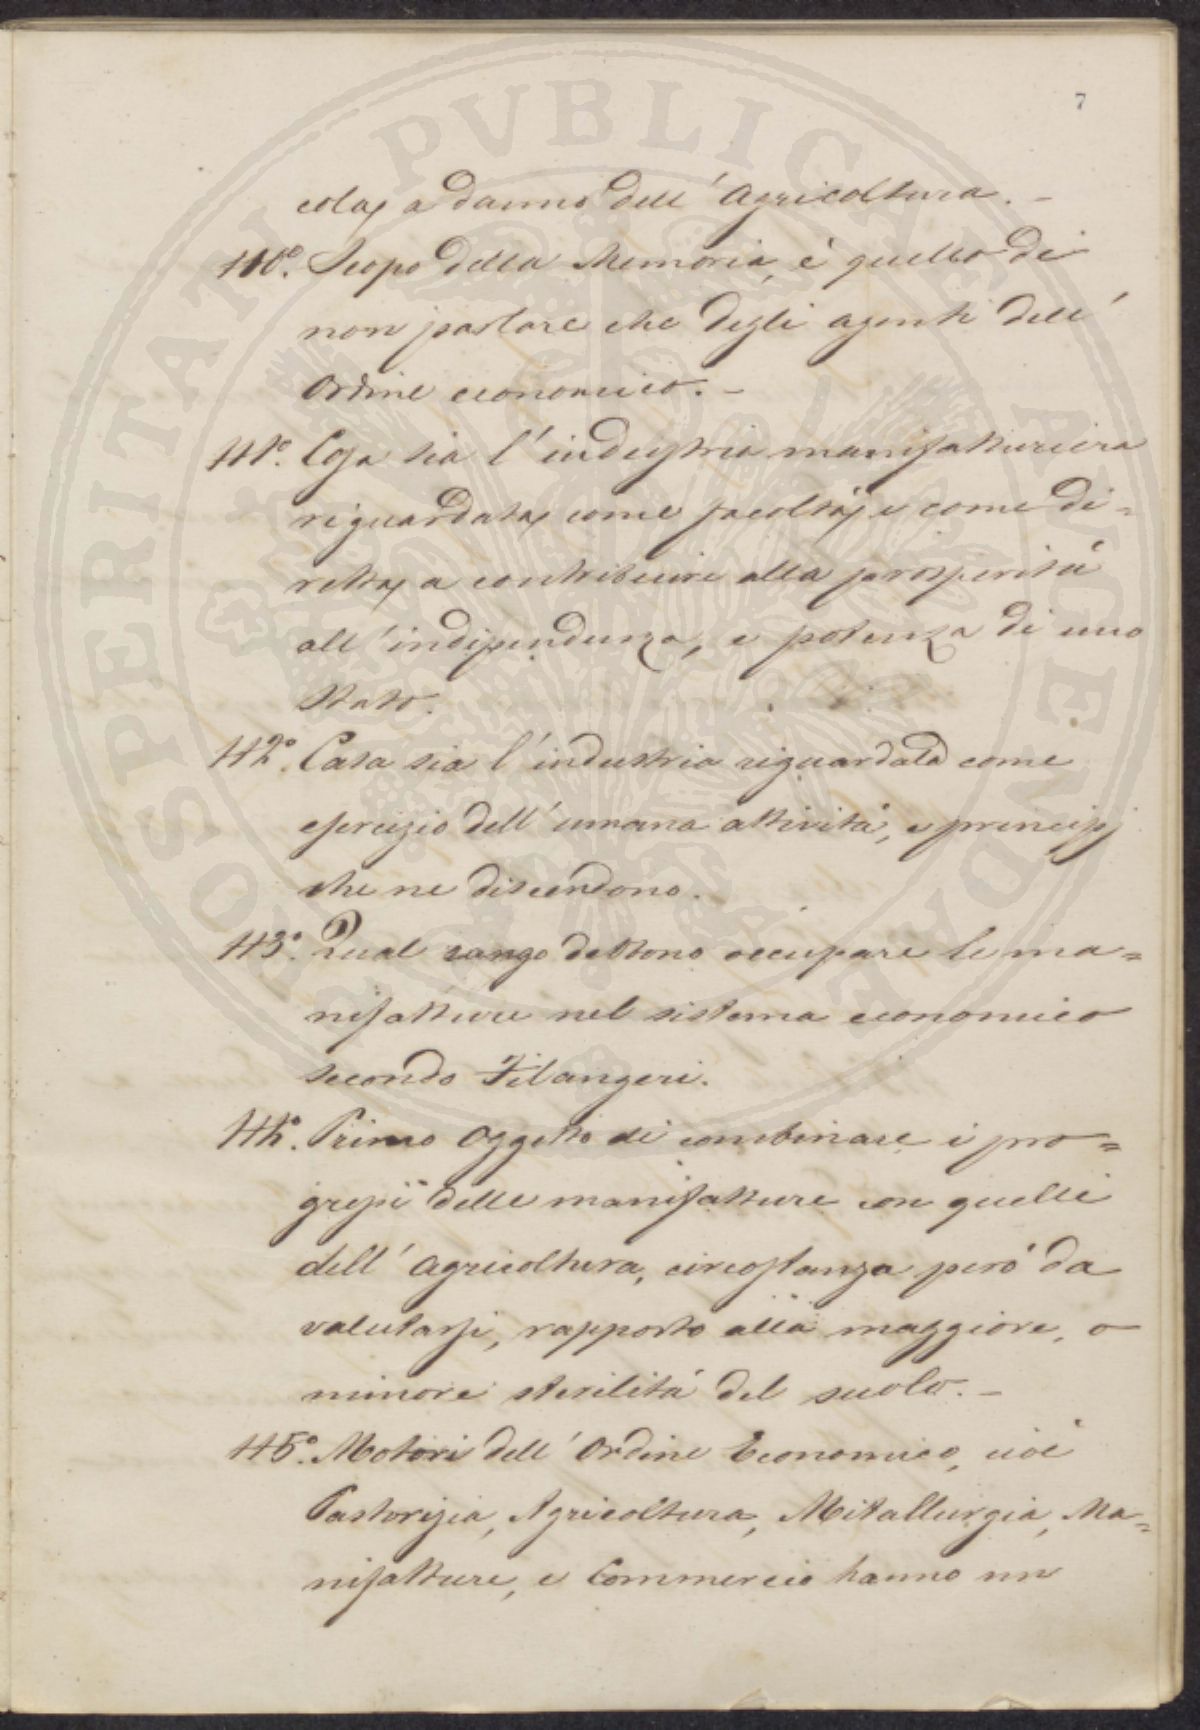 7
cola, a danno dell' Agricoltura. –
110.° Scopo della Memoria, è quello di
non parlare che degli agenti dell'
Ordine economico. –
111.° Cosa sia l'industria manifatturiera
riguardata, come facoltà, e come di=
retta, a contribuire alla prosperità
all'indipendenza, e potenza di uno
Stato.
112.° Cosa sia l'industria riguardata come
esercizio dell'umana attività, e principj
che ne discendono.
113.° Qual rango debbono occupare le ma=
nifatture nel sistema economico
secondo Filangeri.
114.° Primo oggetto di combinare i pro=
gressi delle manifatture con quelli
dell'Agricoltura, circostanza però da
valutarsi, rapporto alla maggiore, o
minore sterilità del suolo. –
115.° Motori dell'Ordine Economico, cioè
Pastorizia, Agricoltura, Mitallurgia, Ma=
nifatture, e Commercio hanno un
PROSPERITATI PVBLICAE AVGENDAE